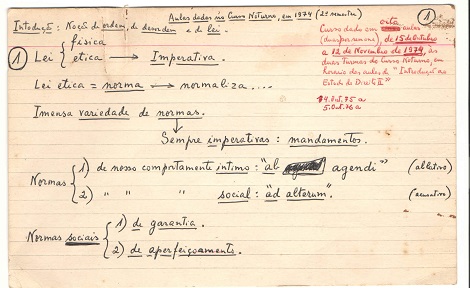 Aulas dadas no Curso Noturno, em 1974 (2º semestre)
Introdução: Noção de ordem, de desordem e de lei.
1
Curso dado em oito aulas
(duas por semana), de 15 de Outubro
a 12 de Novembro de 1974, às
duas Turmas do Curso Noturno, em
horário das aulas de "Introdução ao
Estudo do Direito II"
4.Out.75 a
5.Out.76 a
1 Lei { física
etica → Imperativa.
Lei etica = norma → normaliza ....
Imensa variedade de normas.
Sempre imperativas: mandamentos.
Normas { 1) de nosso comportamento intimo: "ab agendi" (ablativo)
2) " " " social: "ad alterum". (acusativo)
Normas sociais { 1) de garantia.
2) de aperfeiçoamento.